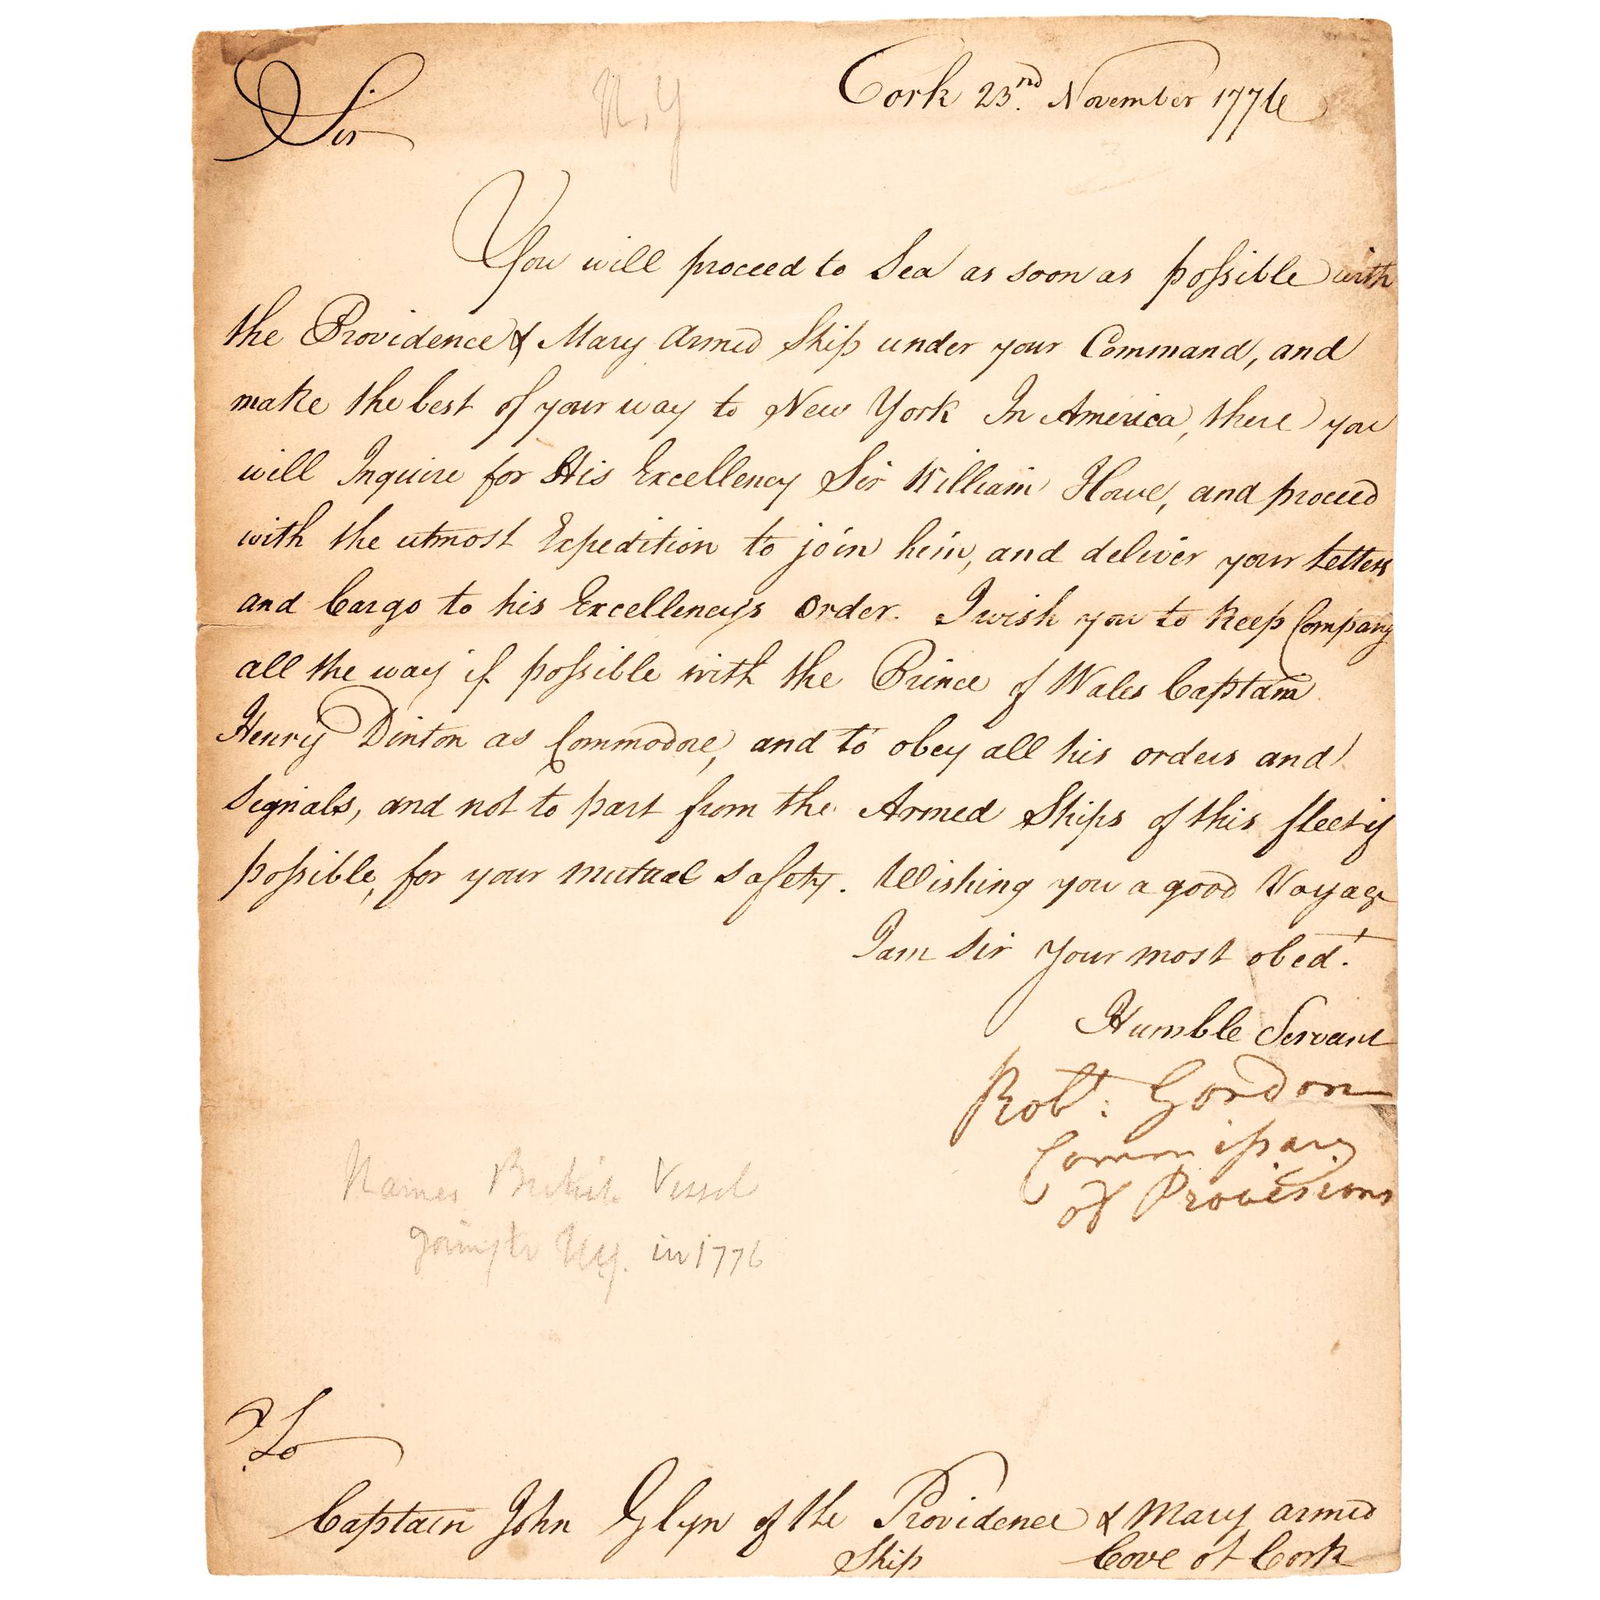 Cork 23.rd November 1776
Sir
N.Y
You will proceed to Sea as soon as possible with
the Providence & Mary Armed Ship under your Command, and
make the best of your way to New York In America, there you
will Inquire for His Excellency Sir William Howe, and proceed
with the utmost Expedition to join him, and deliver your Letters
and Cargo to his Excellencys Order. I wish you to keep Company
all the way if possible with the Prince of Wales Captain
Henry Dinton as Commodore, and to obey all his orders and
Signals, and not to part from the Armed Ships of this fleet if
possible, for your mutual safety. Wishing you a good Voyage
I am Sir Your most obed.t
Humble Servant
Rob.t: Gordon
Commissary
of Provisions
Names British Vessel
going to N.Y. in 1776
To
Captain John Glyn of the Providence & Mary armed
Ship Cove of Cork